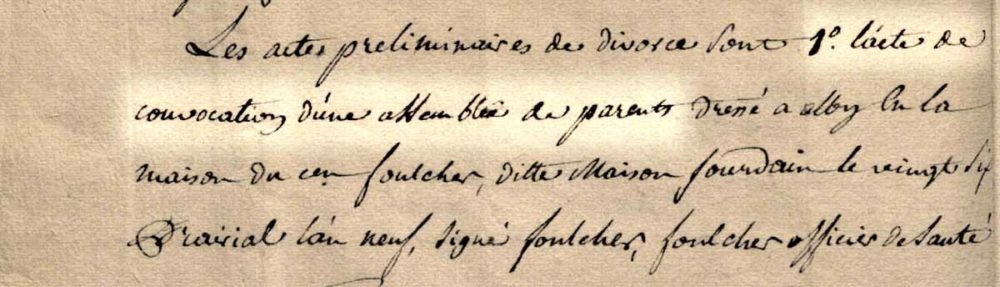 Les actes preliminaires de divorce sont 1º. l'acte de
convocation d'une assemblée de parents dressé a alby en la
maison du cen foulcher, ditte Maison jourdain le vingt six
Prairial l'an neuf, signé foulcher, foulcher officier de santé